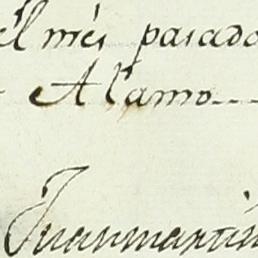 el més pasado
Alamo
Juanmartin